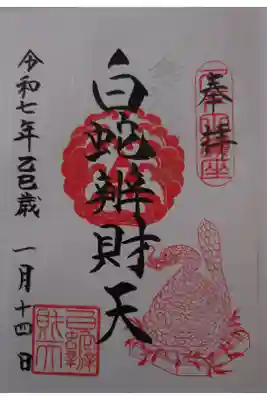 奉拝
白蛇辨財天
令和七年乙巳歳 一月十四日